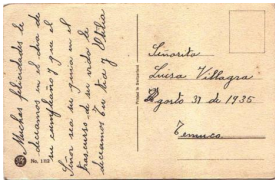 Muchas felicidades le
deseamos en el día de
su cumpleaños y que el
Señor sea su guía en el
trascurso de su vida le
deseamos tu tía y Otilia
No. 1182
Printed in Switzerland
Señorita
Luisa Villagra
Agosto 31 de 1935
Temuco